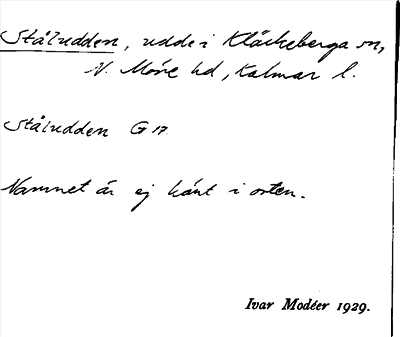 Ståludden, udde i Kläckeberga sn,
N. Möre hd, Kalmar l.
Ståludden G 17
Namnet är ej känt i orten.
Ivar Modéer 1929.